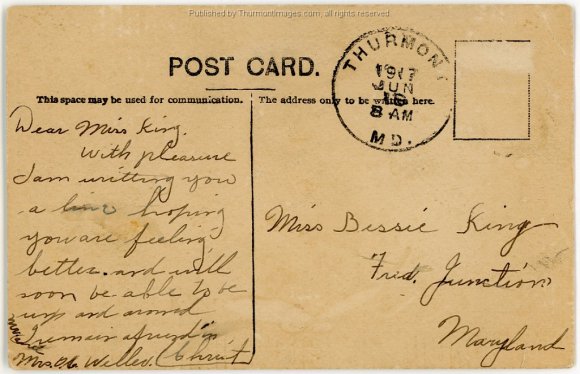 Published by ThurmontImages.com, all rights reserved
POST CARD.
THURMONT
1917
JUN
8 AM
MD.
This space may be used for communication.
The address only to be written here.
Dear Miss King.
With pleasure
I am writting you
a line hoping
you are feeling
better. and will
soon be able to be
up and around
I remain a friend in
Christ
Mrs.
Miss Bessie King
Fred. Junction
Maryland